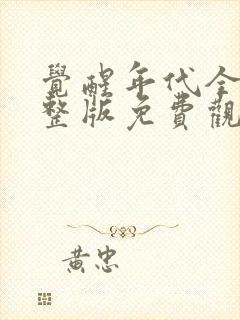 覺醒年代全
整版免費觀
黃忠